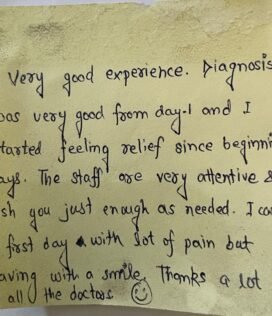 Very good experience. Diagnosis
was very good from day-1 and I
started feeling relief since beginni
ays. The staff are very attentive &
sh you just enough as needed. I ca
first day with lot of pain but
aving with a smile. Thanks a lot
all the doctors ☺